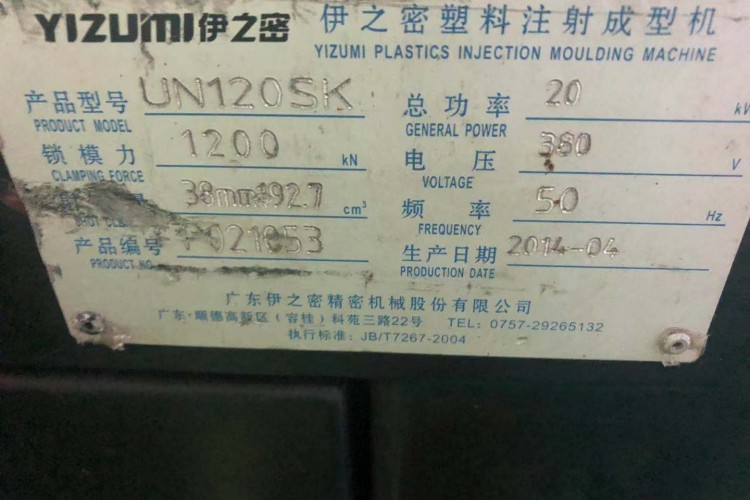 YIZUMI 伊之密 伊之密塑料注射成型机
YIZUMI PLASTICS INJECTION MOULDING MACHINE
产品型号 UN120SK 总功率 20 kW
PRODUCT MODEL GENERAL POWER
锁模力 1200 kN 电压 380 V
CLAMPING FORCE VOLTAGE
38mm 192.7 cm³ 频率 50 Hz
FREQUENCY
产品编号 P021053 生产日期 2014-04
PRODUCT NO. PRODUCTION DATE
广东伊之密精密机械股份有限公司
广东·顺德高新区(容桂)科苑三路22号 TEL: 0757-29265132
执行标准: JB/T7267-2004